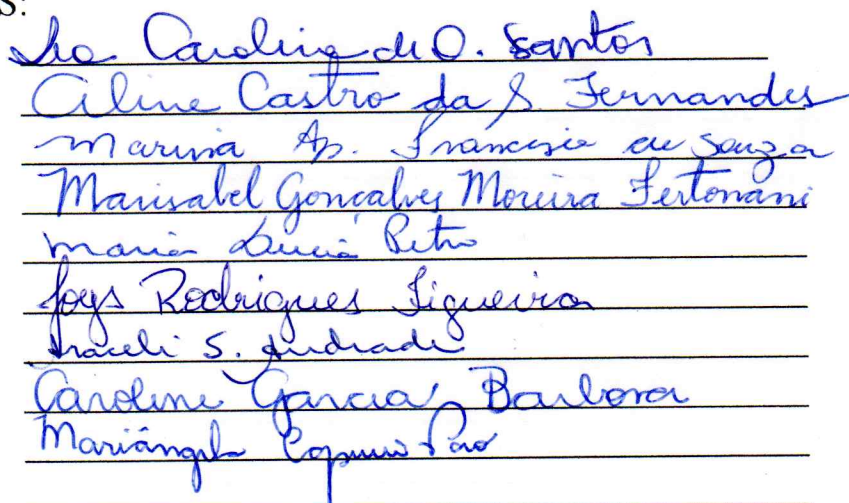 S:
Carolina de O. Santos
Aline Castro da S. Fernandes
Marina Ap. de Souza
Marisabel Gonçalves Moreira Fertonani
Maria Lucia Petro
Joys Rodrigues Figueira
Araceli S. Andrade
Caroline Garcia Barbosa
Mariângela